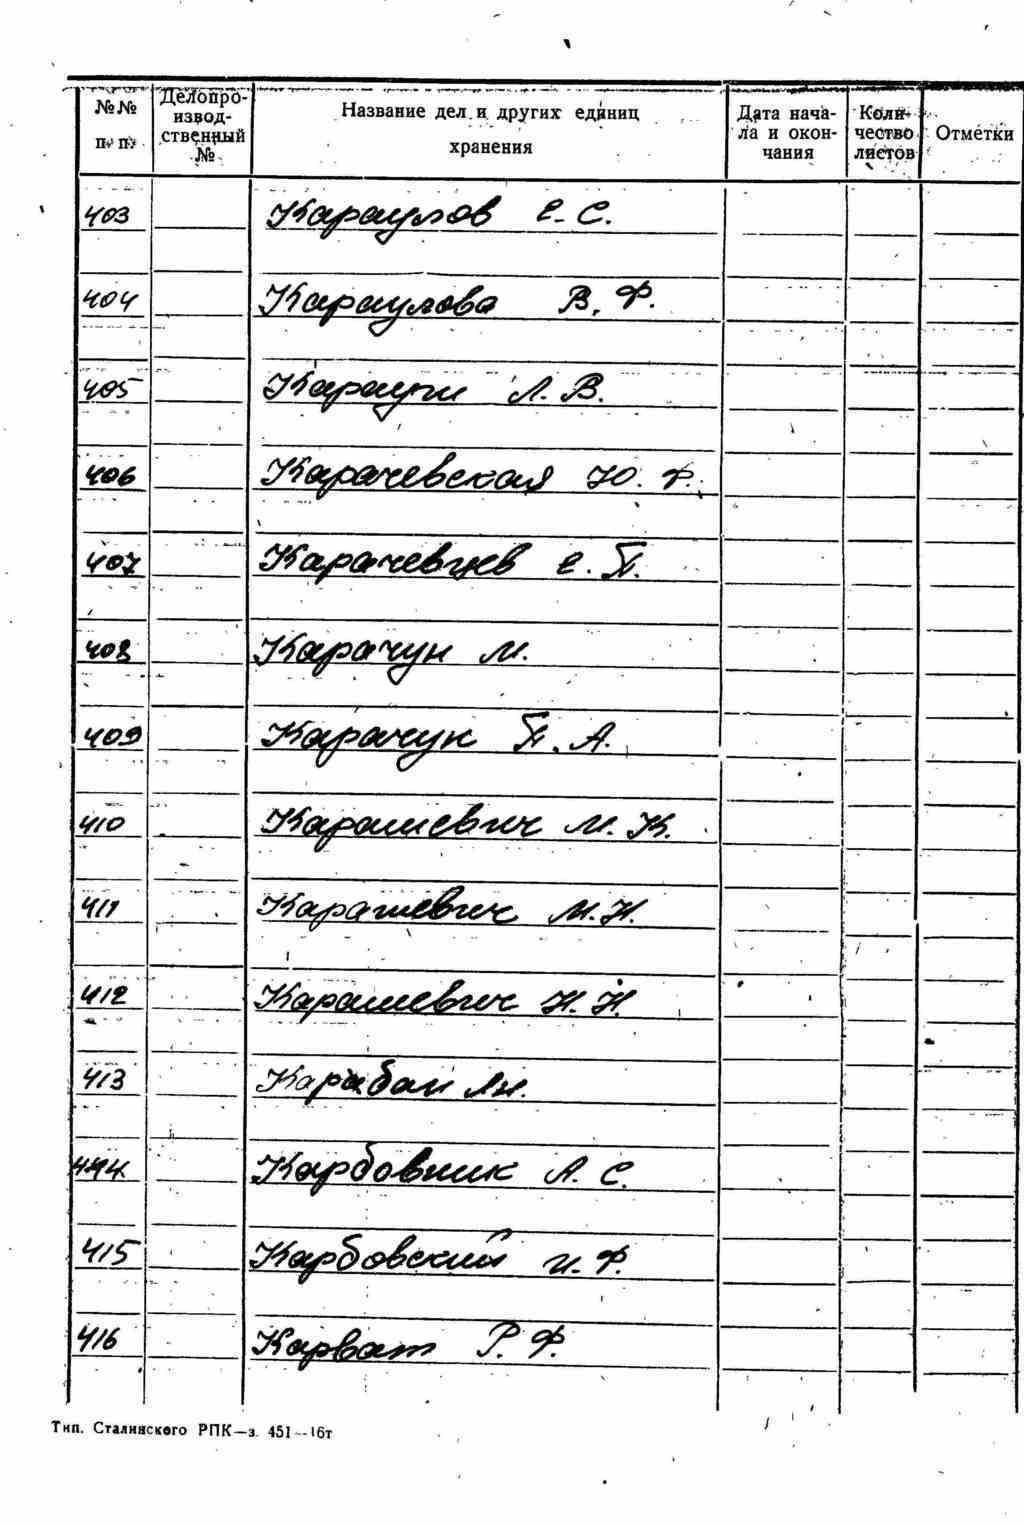 №№ п/п Делопроизводственный № Название дел и других единиц хранения Дата начала и окончания Количество листов Отметки
403 Караулов Е. С.
404 Караулова В. Ф.
405 Л. В.
406 Карачевская Ю. Ф.
407 Карачевцев Е. П.
408 Карачун М.
409 Карачун П. А.
410 Карашевич М. К.
411 Карашевич М. Н.
412 Карашевич Н. Н.
413 Карабан
414 Карбовник А. С.
415 Карбовский И. Ф.
416 Карват Р. Ф.
Тип. Сталинского РПК—з. 451—16т